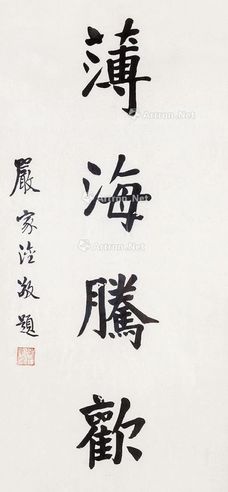 薄海騰歡
嚴家淦敬題
Artron.Net
Artron.Net
Artron.Net